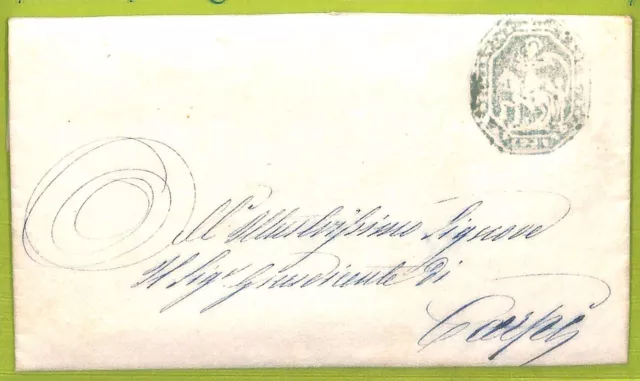 All' Illustrissimo Signore
Il Sig.r Giusdicente di
Carpi